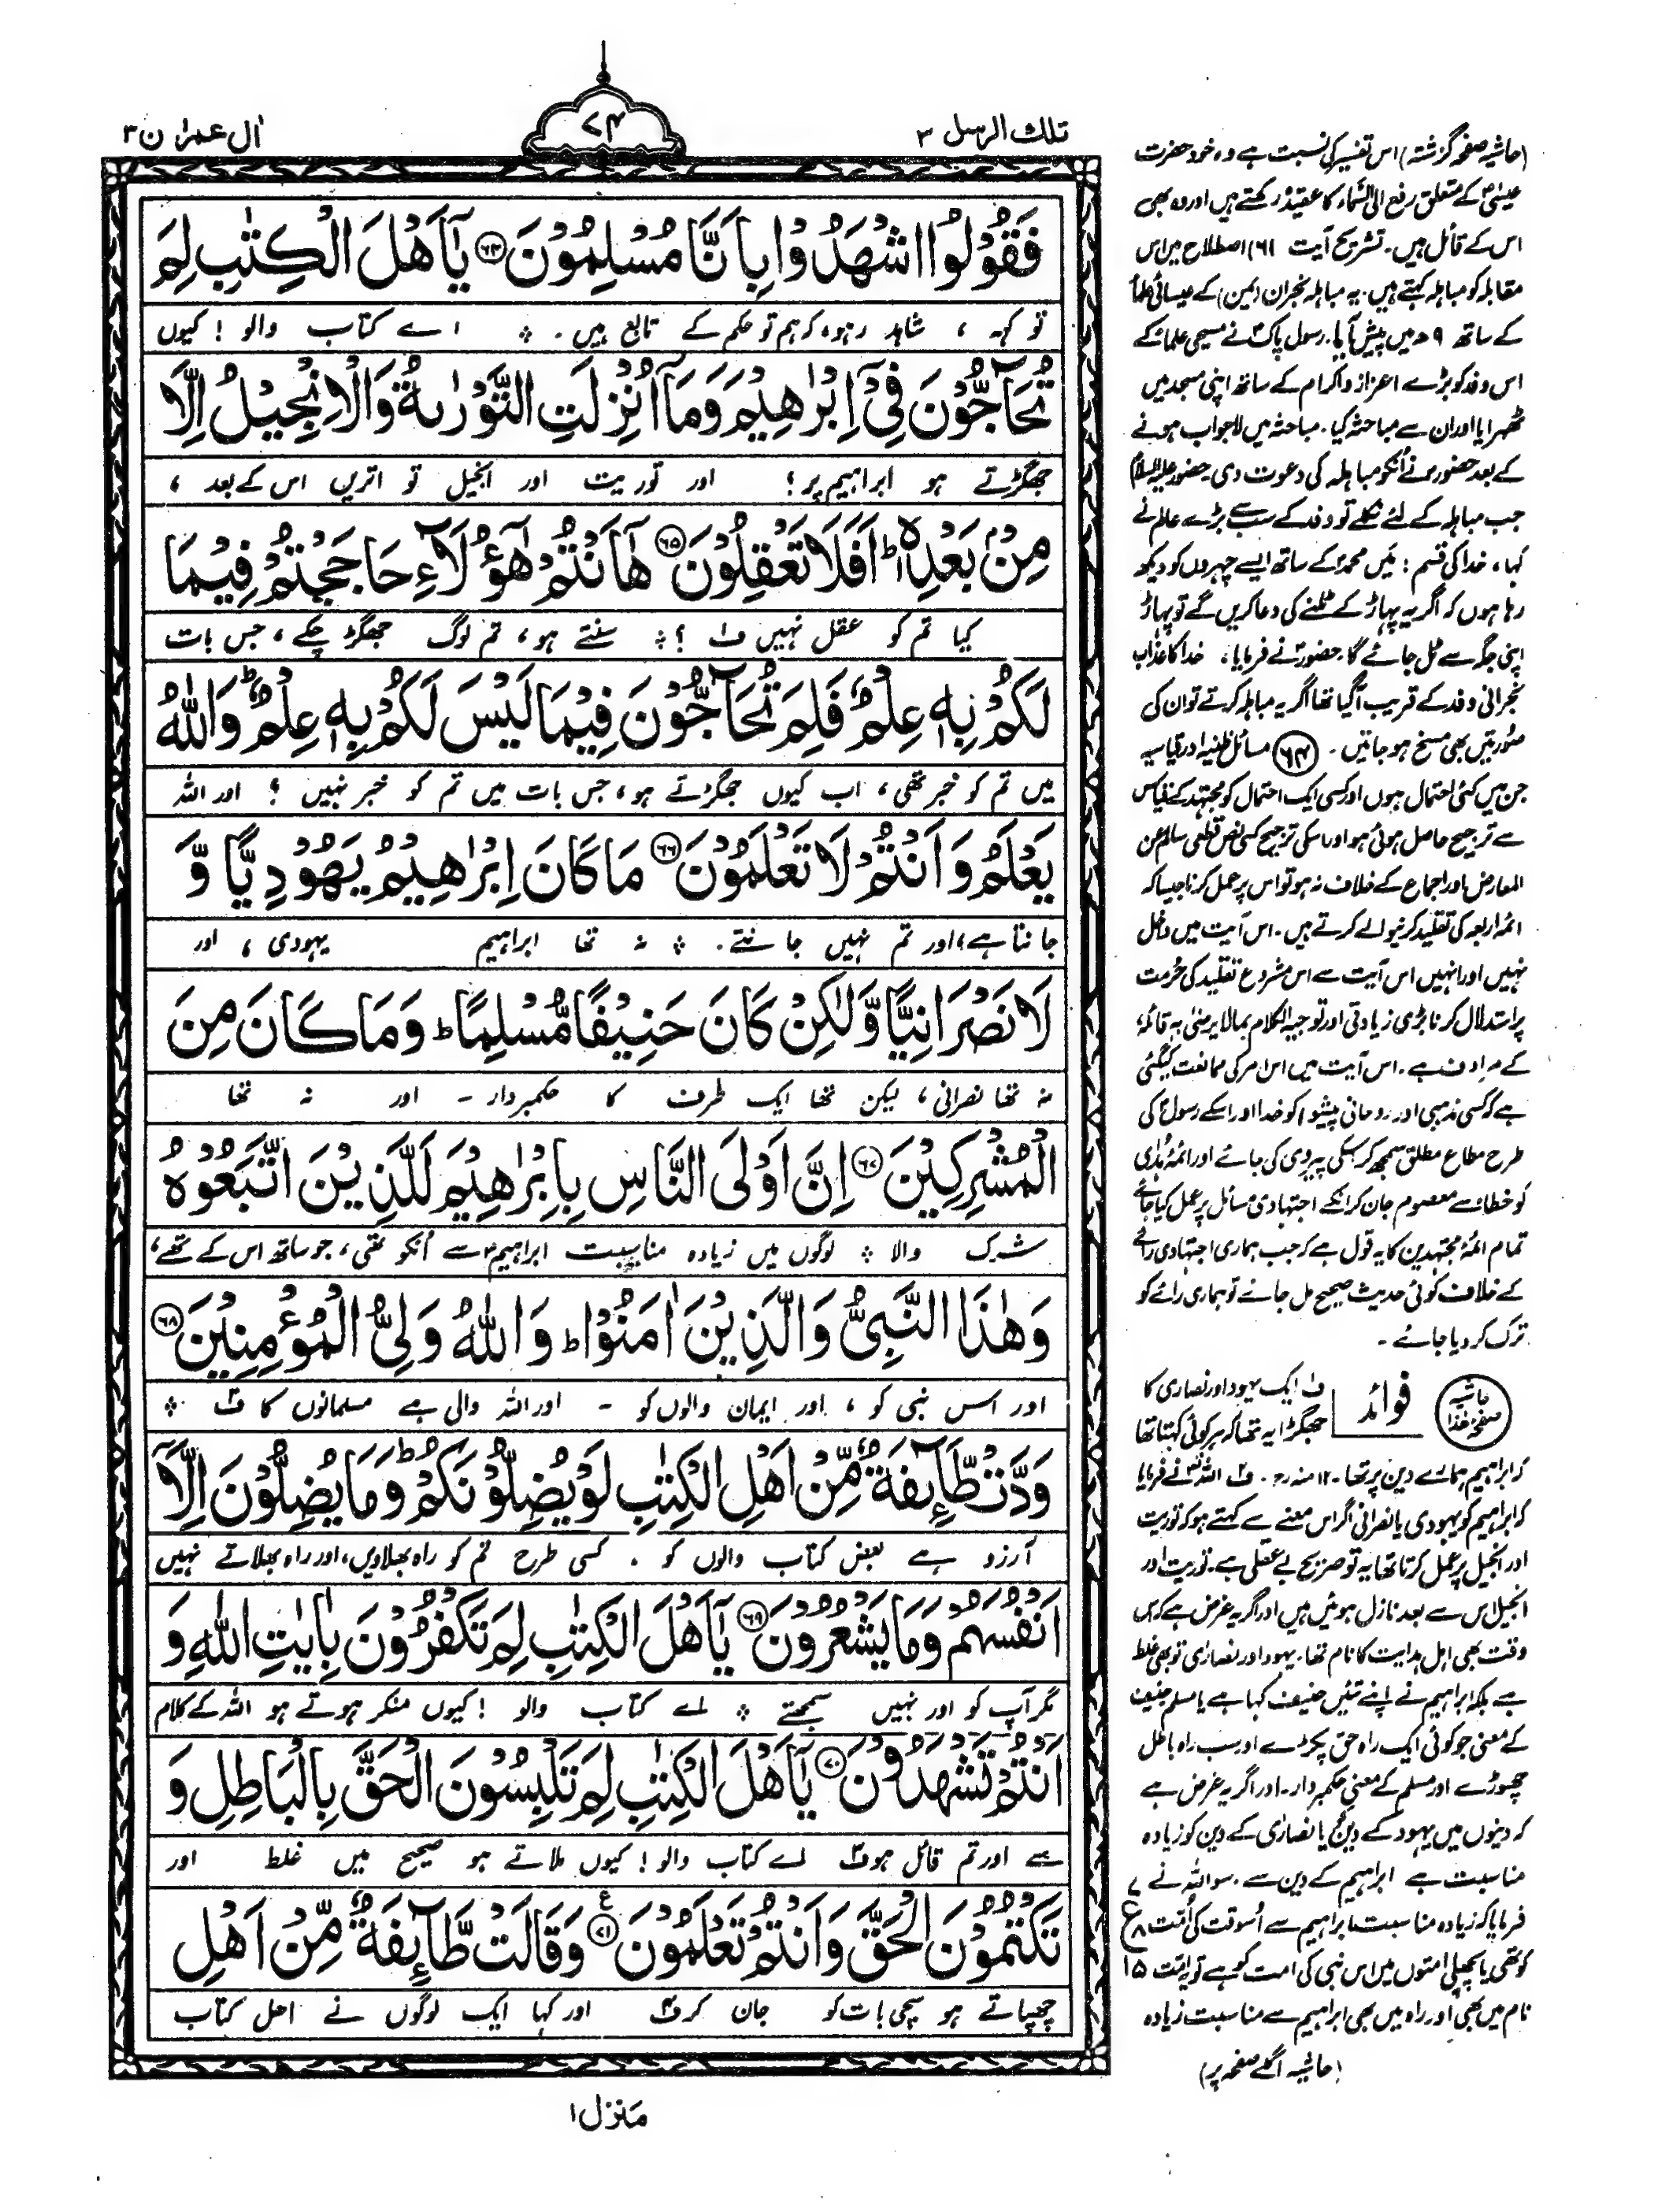 تلك الرسل ۳
۷۴
اٰل عمرٰن ۳
فَقُوْلُوا اشْهَدُوْا بِاَنَّا مُسْلِمُوْنَ ۶۴ يٰۤاَهْلَ الْكِتٰبِ لِمَ
تو کہو ، شاہد رہو، کہ ہم تو حکم کے تابع ہیں . ؞ اے کتاب والو ! کیوں
تُحَآجُّوْنَ فِىْۤ اِبْرٰهِيْمَ وَمَاۤ اُنْزِلَتِ التَّوْرٰىةُ وَالْاِنْجِيْلُ اِلَّا
جھگڑتے ہو ابراہیم پر ؟ اور توریت اور انجیل تو اتریں اس کے بعد ،
مِنْۢ بَعْدِهٖ ؕ اَفَلَا تَعْقِلُوْنَ ۶۵ هٰۤاَنْتُمْ هٰۤؤُلَآءِ حَاجَجْتُمْ فِيْمَا
کیا تم کو عقل نہیں ف۱ ؟ ؞ سنتے ہو ، تم لوگ جھگڑ چکے ، جس بات
لَكُمْ بِهٖ عِلْمٌ فَلِمَ تُحَآجُّوْنَ فِيْمَا لَيْسَ لَكُمْ بِهٖ عِلْمٌ ؕ وَاللّٰهُ
میں تم کو خبر تھی ، اب کیوں جھگڑتے ہو ، جس بات میں تم کو خبر نہیں ؟ اور اللہ
يَعْلَمُ وَاَنْتُمْ لَا تَعْلَمُوْنَ ۶۶ مَا كَانَ اِبْرٰهِيْمُ يَهُوْدِيًّا وَّ
جانتا ہے ، اور تم نہیں جانتے . ؞ نہ تھا ابراہیم یہودی ، اور
لَا نَصْرَانِيًّا وَّلٰكِنْ كَانَ حَنِيْفًا مُّسْلِمًا ؕ وَمَا كَانَ مِنَ
نہ تھا نصرانی ، لیکن تھا ایک طرف کا حکمبردار - اور نہ تھا
الْمُشْرِكِيْنَ ۶۷ اِنَّ اَوْلَى النَّاسِ بِاِبْرٰهِيْمَ لَلَّذِيْنَ اتَّبَعُوْهُ
شرک والا ؞ لوگوں میں زیادہ مناسبت ابراہیمؑ سے اُنکو تھی ، جو ساتھ اس کے تھے ،
وَهٰذَا النَّبِىُّ وَالَّذِيْنَ اٰمَنُوْا ؕ وَاللّٰهُ وَلِىُّ الْمُؤْمِنِيْنَ ۶۸
اور اس نبی کو ، اور ایمان والوں کو - اور اللہ والی ہے مسلمانوں کا ف۲ ؞
وَدَّتْ طَّآئِفَةٌ مِّنْ اَهْلِ الْكِتٰبِ لَوْ يُضِلُّوْنَكُمْ ؕ وَمَا يُضِلُّوْنَ اِلَّاۤ
آرزو ہے بعض کتاب والوں کو . کسی طرح تم کو راہ بھلاویں ، اور راہ بھلاتے نہیں
اَنْفُسَهُمْ وَمَا يَشْعُرُوْنَ ۶۹ يٰۤاَهْلَ الْكِتٰبِ لِمَ تَكْفُرُوْنَ بِاٰيٰتِ اللّٰهِ وَ
مگر آپ کو اور نہیں سمجھتے ؞ اے کتاب والو ! کیوں منکر ہوتے ہو اللہ کے کلام
اَنْتُمْ تَشْهَدُوْنَ ۷۰ يٰۤاَهْلَ الْكِتٰبِ لِمَ تَلْبِسُوْنَ الْحَقَّ بِالْبَاطِلِ وَ
سے اور تم قائل ہو ف۳ اے کتاب والو ! کیوں ملاتے ہو صحیح میں غلط اور
تَكْتُمُوْنَ الْحَقَّ وَاَنْتُمْ تَعْلَمُوْنَ ۷۱ ع وَقَالَتْ طَّآئِفَةٌ مِّنْ اَهْلِ
چھپاتے ہو سچی بات کو جان کر ف۴ اور کہا ایک لوگوں نے اہل کتاب
منزل ۱
(حاشیہ صفحہ گزشتہ) اس تفسیر کی نسبت ہے وہ خود حضرت
عیسیٰؑ کے متعلق رفع الی السّماء کا عقیدہ رکھتے ہیں اور وہ بھی
اس کے قائل ہیں۔ تشریح آیت (۶۱) اصطلاح میں اس
مقابلہ کو مباہلہ کہتے ہیں. یہ مباہلہ نجران (یمن) کے عیسائی علماء
کے ساتھ ۹ھ میں پیش آیا. رسول پاکؐ نے مسیحی علماء کے
اس وفد کو بڑے اعزاز و اکرام کے ساتھ اپنی مسجد میں
ٹھہرایا اور ان سے مباحثہ کیا. مباحثہ میں لاجواب ہونے
کے بعد حضورؐ نے اُنکو مباہلہ کی دعوت دی. حضور علیہ السلام
جب مباہلہ کے لئے نکلے تو وفد کے سب سے بڑے عالم نے
کہا، خدا کی قسم : میں محمدؐ کے ساتھ ایسے چہروں کو دیکھ
رہا ہوں کہ اگر یہ پہاڑ کے ٹلنے کی دعا کریں گے تو پہاڑ
اپنی جگہ سے ٹل جائے گا. حضورؐ نے فرمایا، خدا کا عذاب
نجرانی وفد کے قریب آگیا تھا اگر یہ مباہلہ کرتے تو ان کی
صورتیں بھی مسخ ہو جاتیں ۔ ۶۴ مسائل ظنیہ اور قیاسیہ
جن میں کئی احتمال ہوں اور کسی ایک احتمال کو مجتہد کے قیاس
سے ترجیح حاصل ہوئی ہو اور اسکی ترجیح کسی نص قطعی سالم عن
المعارض اور اجماع کے خلاف نہ ہو تو اس پر عمل کرنا جیسا کہ
ائمہ اربعہ کی تقلید کرنیوالے کرتے ہیں. اس آیت میں داخل
نہیں اور انہیں اس آیت سے اس مشروع تقلید کی حُرمت
پر استدلال کرنا بڑی زیادتی اور توجیہ الکلام بمالا یرضٰی بہ قائلہٗ
کے مرادف ہے. اس آیت میں اس امر کی ممانعت کیگئی
ہے کہ کسی مذہبی اور روحانی پیشوا کو خدا اور اسکے رسولؐ کی
طرح مطاع مطلق سمجھ کر اسکی پیروی کی جائے اور ائمۂ ہُدٰی
کو خطاء سے معصوم جان کر انکے اجتہادی مسائل پر عمل کیا جائے
تمام ائمۂ مجتہدین کا یہ قول ہے کہ جب ہماری اجتہادی رائے
کے خلاف کوئی حدیث صحیح مل جائے تو ہماری رائے کو
ترک کر دیا جائے ۔
حاشیہ صفحہ ھذا
فوائد
ف۱ ایک یہود اور نصاریٰ کا
جھگڑا یہ تھا کہ ہر کوئی کہتا تھا
کہ ابراہیم ہمارے دین پر تھا ۔ ۱۲ منہ رح . ف۲ اللہ نے فرمایا
کہ ابراہیم کو یہودی یا نصرانی اگر اس معنے سے کہتے ہو کہ توریت
اور انجیل پر عمل کرتا تھا یہ تو صریح بے عقلی ہے. توریت اور
انجیل اس سے بعد نازل ہوئیں ہیں اور اگر یہ غرض ہے کہ اس
وقت بھی اہل ہدایت کا نام تھا. یہود اور نصارٰی تو بھی غلط
ہے بلکہ ابراہیم نے اپنے تئیں حنیف کہا ہے یا مسلم حنیف
کے معنی جو کوئی ایک راہ حق پکڑے اور سب راہ باطل
چھوڑے اور مسلم کے معنی حکمبردار۔ اور اگر یہ غرض ہے
کہ دینوں میں یہود کے دین کو یا نصارٰی کے دین کو زیادہ
مناسبت ہے ابراہیم کے دین سے. سو اللہ نے
فرمایا کہ زیادہ مناسبت ابراہیم سے اُسوقت کی اُمت
کو تھی یا پچھلی امتوں میں اس نبی کی امت کو ہے تو یہ امت
نام میں بھی اور راہ میں بھی ابراہیم سے مناسبت زیادہ
۷
ع
۸
۱۵
(حاشیہ اگلے صفحہ پر)